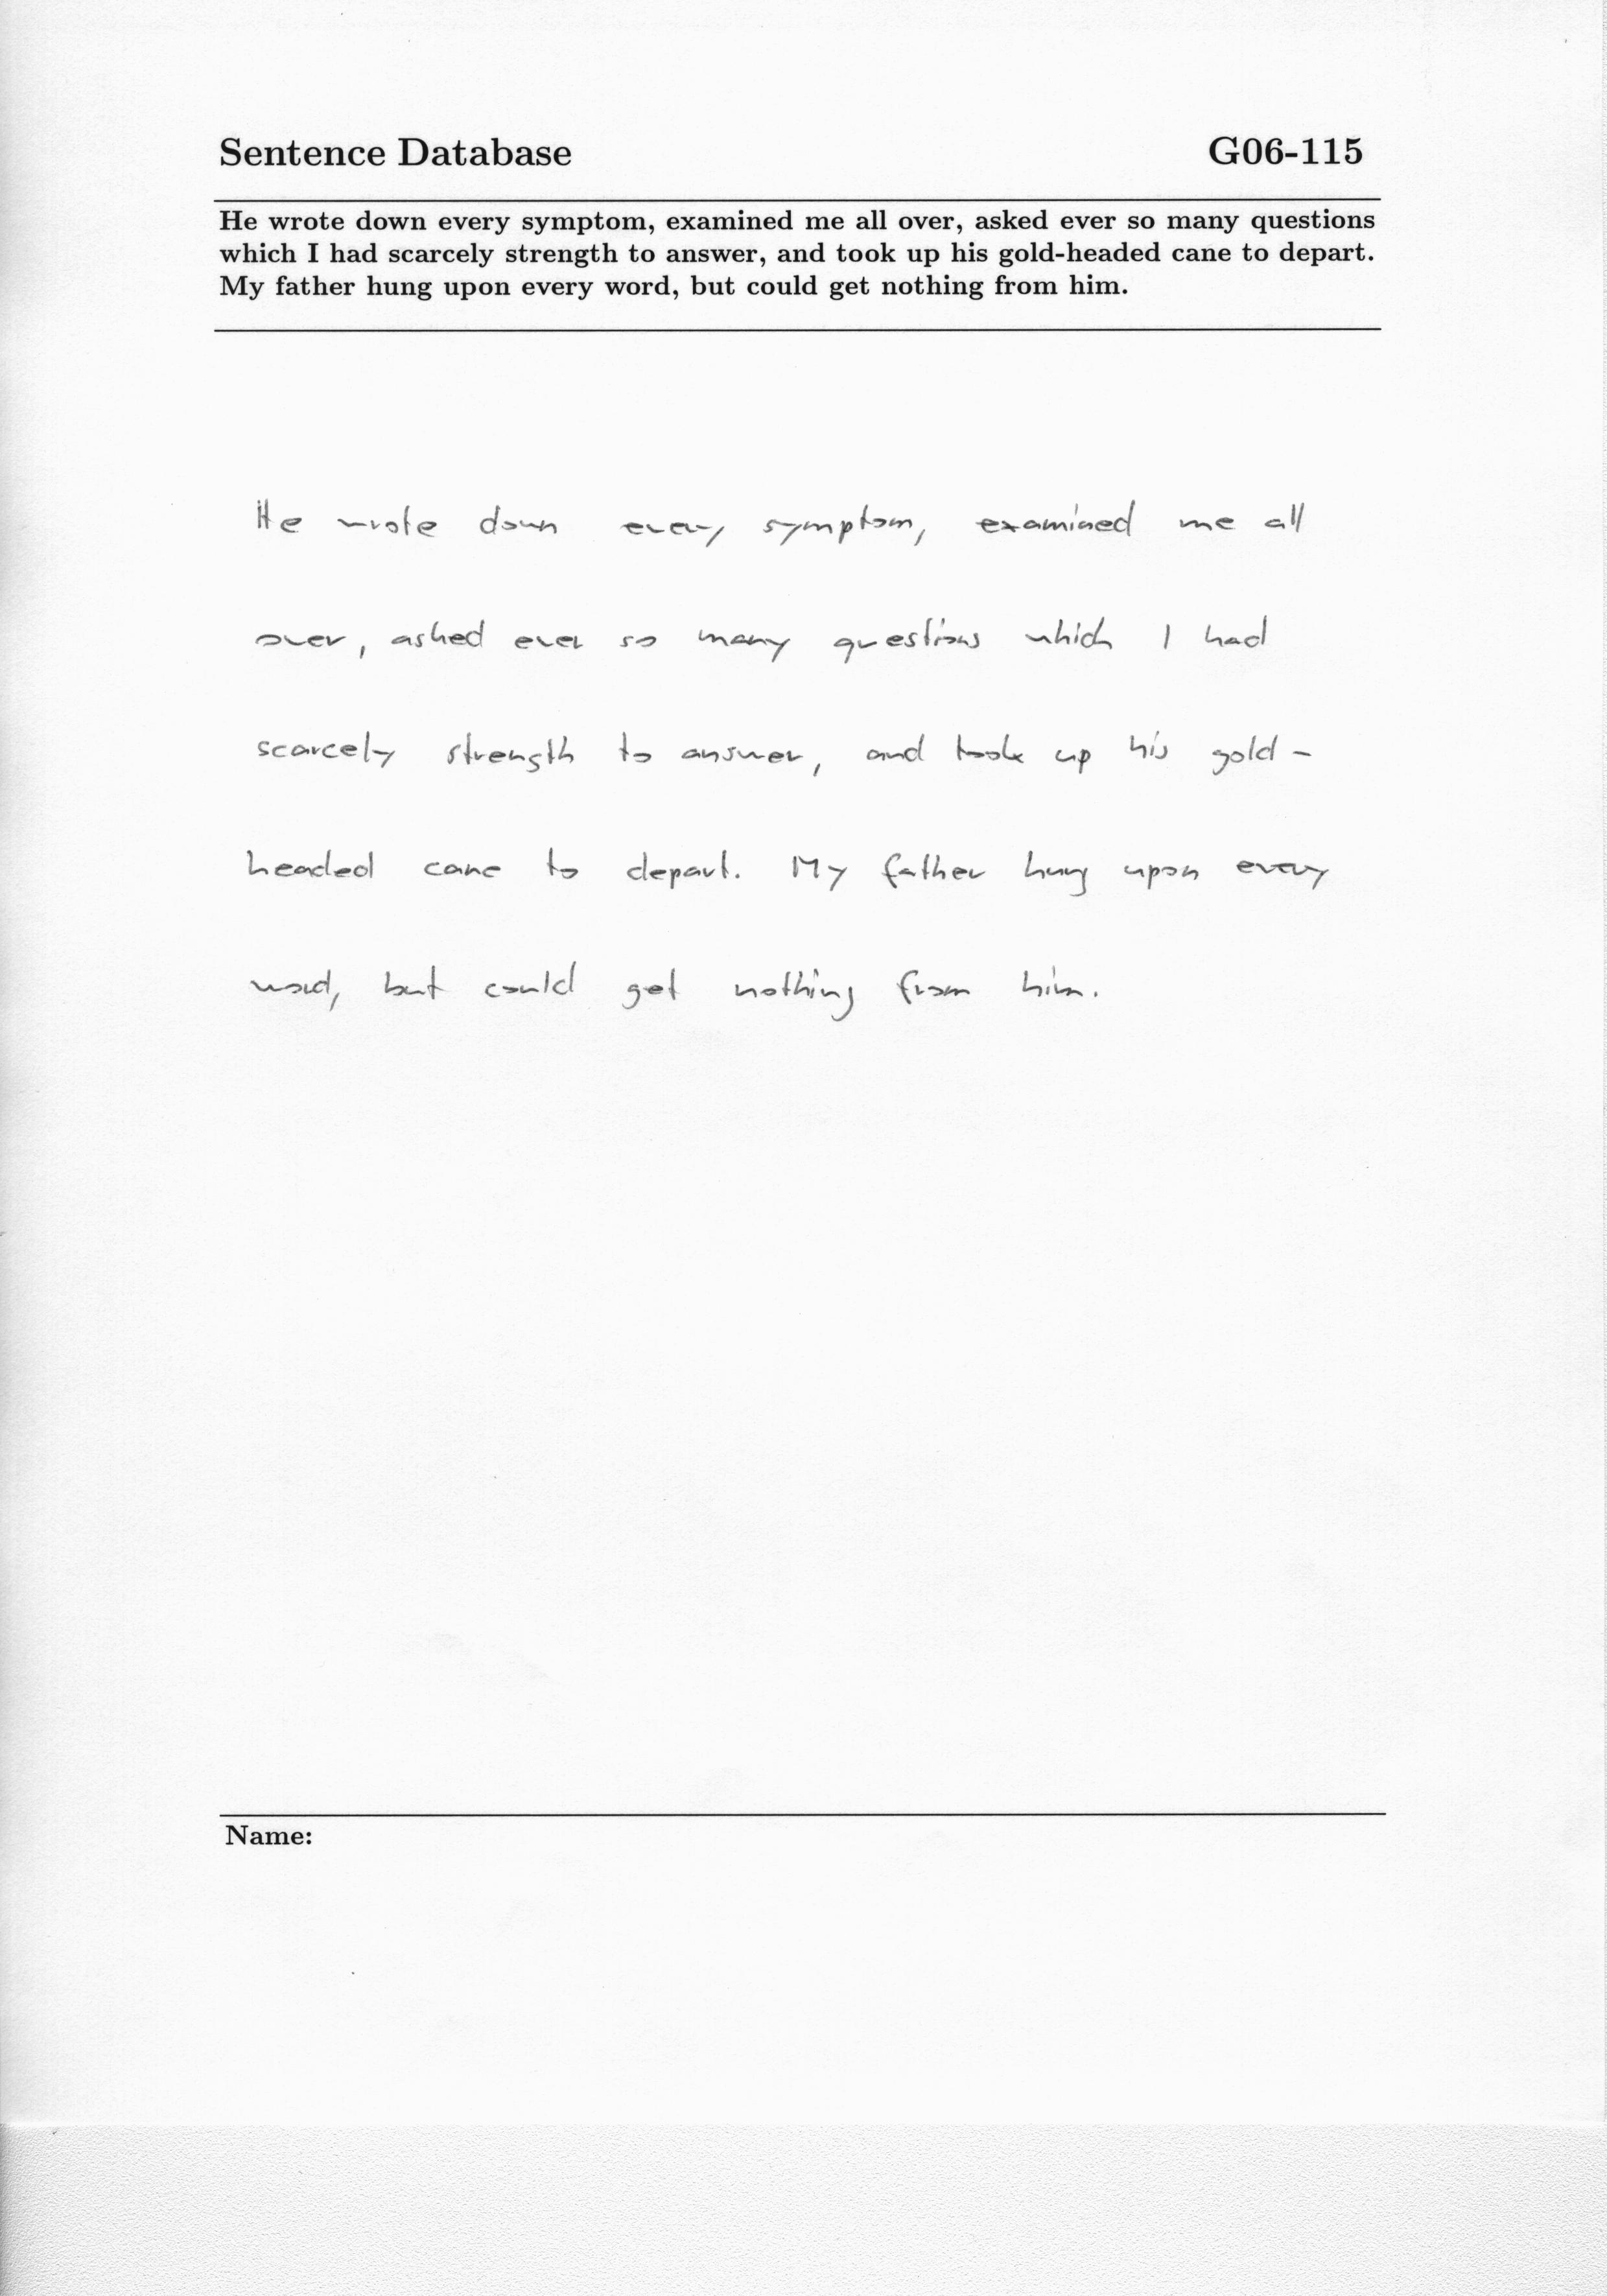 Sentence Database G06-115
He wrote down every symptom, examined me all over, asked ever so many questions
which I had scarcely strength to answer, and took up his gold-headed cane to depart.
My father hung upon every word, but could get nothing from him.
He wrote down every symptom, examined me all
over, asked ever so many questions which I had
scarcely strength to answer, and took up his gold-
headed cane to depart. My father hung upon every
word, but could get nothing from him.
Name: